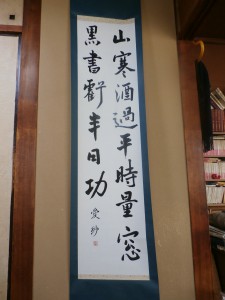 山寒酒過平時量窓
黒書虧半日功
愛紗